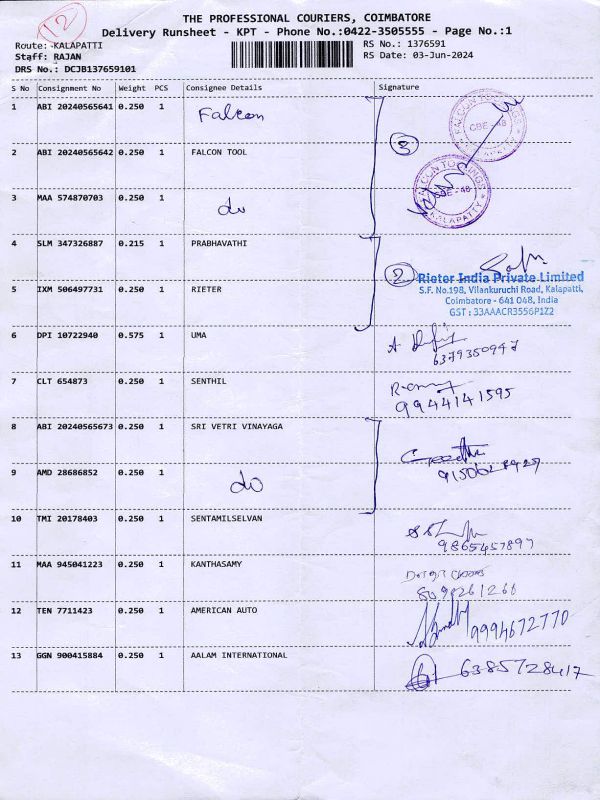 12
THE PROFESSIONAL COURIERS, COIMBATORE
Delivery Runsheet - KPT - Phone No.:0422-3505555 - Page No.:1
Route: KALAPATTI
RS No.: 1376591
Staff: RAJAN
RS Date: 03-Jun-2024
DRS No.: DCJB137659101
S No Consignment No Weight PCS Consignee Details Signature
1 ABI 20240565641 0.250 1 Falcon
FALCON TOOLINGS CBE - 48 KALAPATTY
3
2 ABI 20240565642 0.250 1 FALCON TOOL
FALCON TOOLINGS CBE - 48 KALAPATTY
3 MAA 574870703 0.250 1 do
4 SLM 347326887 0.215 1 PRABHAVATHI
2
Rieter India Private Limited
S.F. No.198, Vilankuruchi Road, Kalapatti,
Coimbatore - 641 048, India
GST : 33AAACR3556P1Z2
5 IXM 506497731 0.250 1 RIETER
6 DPI 10722940 0.575 1 UMA
6379350947
7 CLT 654873 0.250 1 SENTHIL
9944141595
8 ABI 20240565673 0.250 1 SRI VETRI VINAYAGA
9 AMD 28686852 0.250 1 do
10 TMI 20178403 0.250 1 SENTAMILSELVAN
11 MAA 945041223 0.250 1 KANTHASAMY
12 TEN 7711423 0.250 1 AMERICAN AUTO
9994672770
13 GGN 900415884 0.250 1 AALAM INTERNATIONAL
6385728417